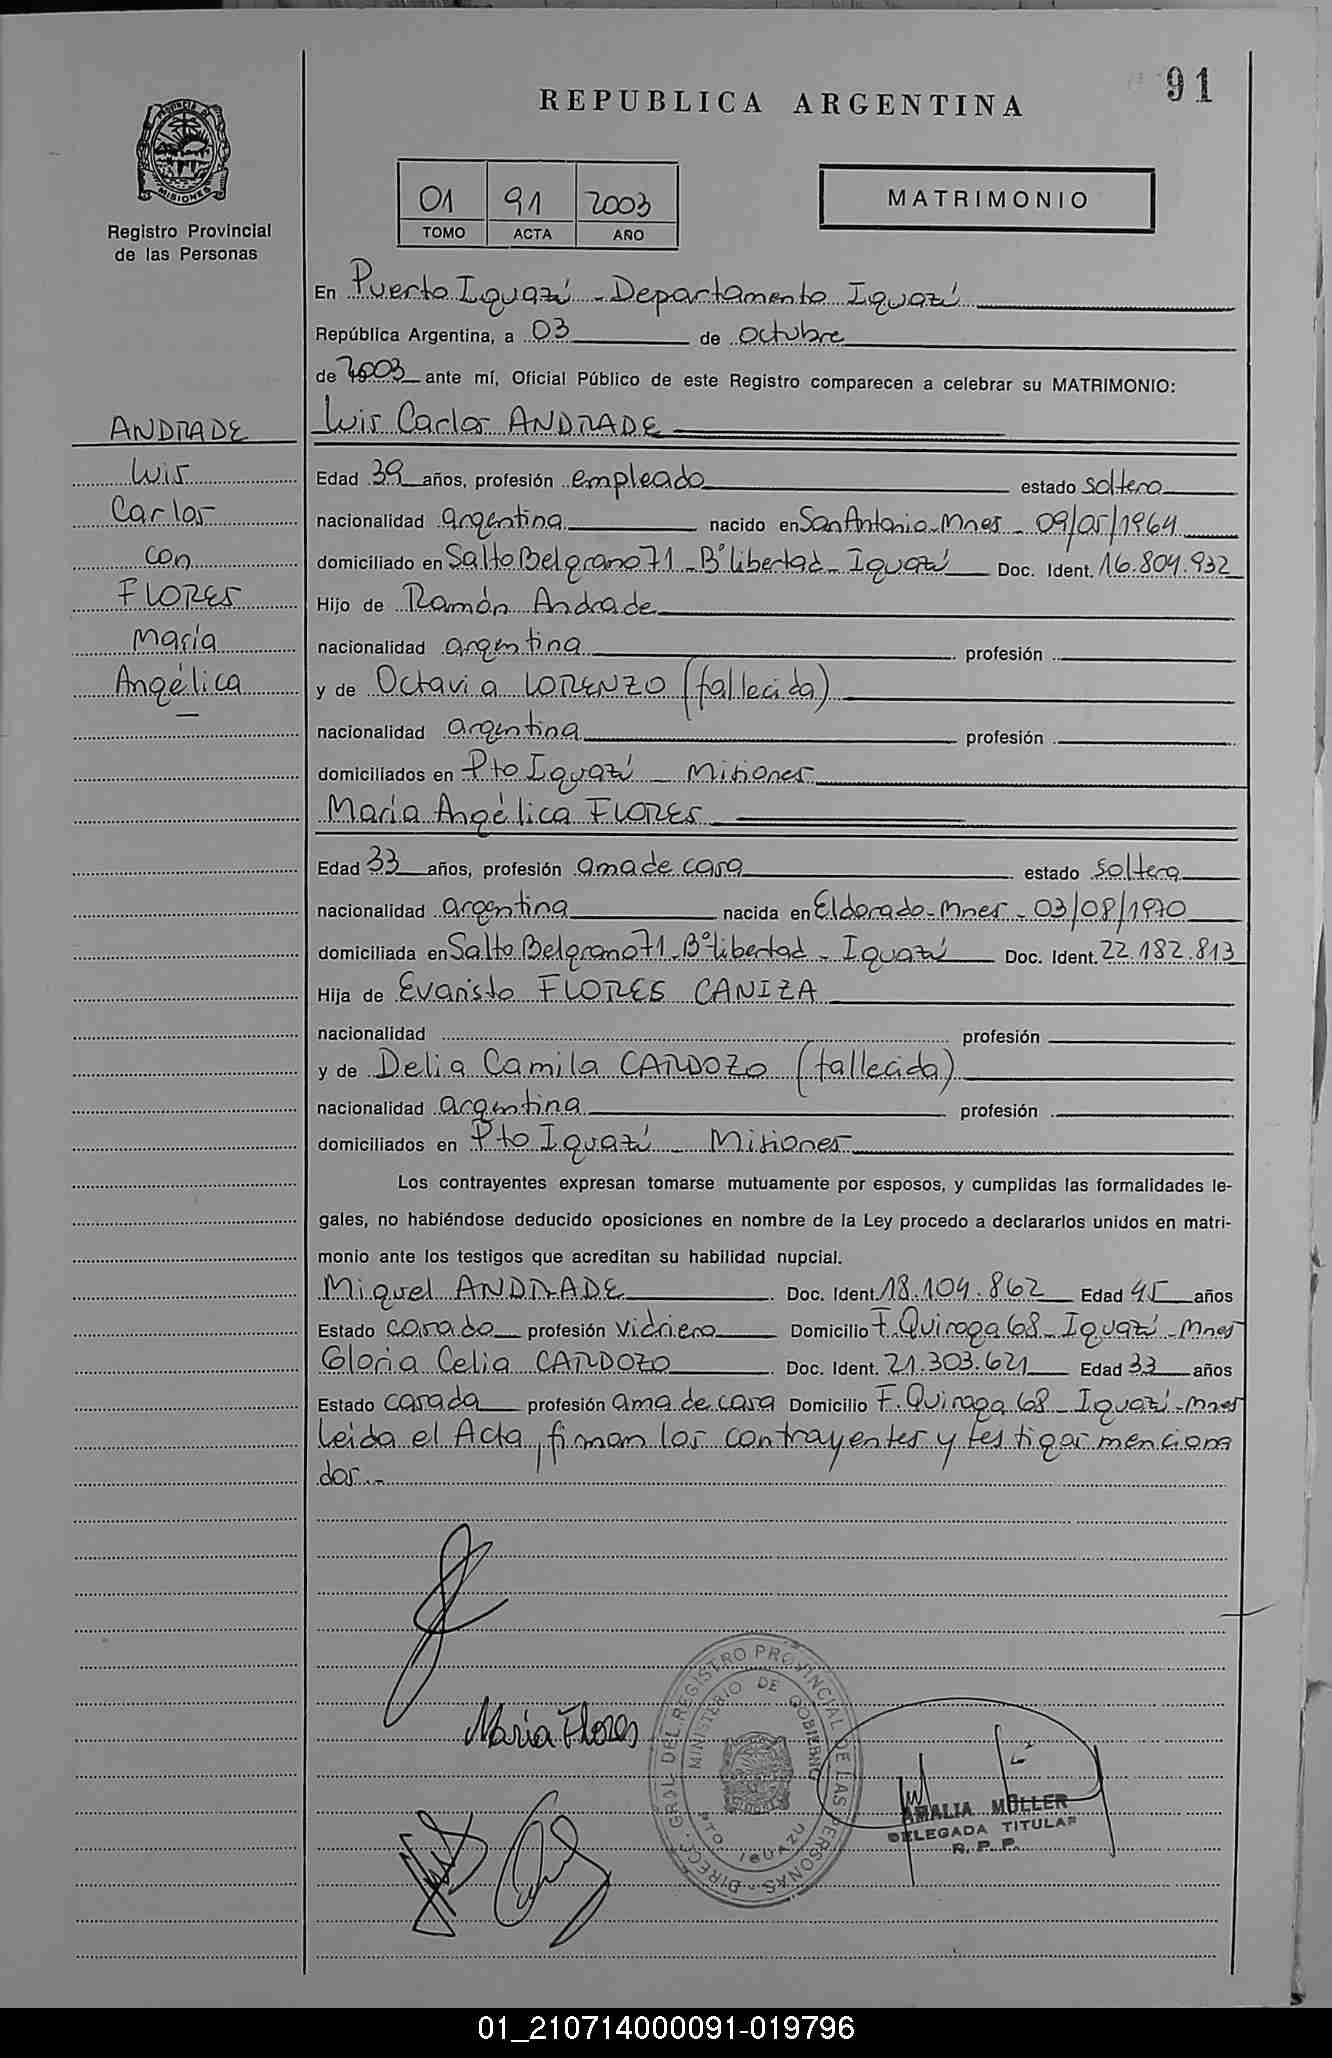 91
REPUBLICA ARGENTINA
PROVINCIA DE
MISIONES
Registro Provincial
de las Personas
01 91 2003
TOMO ACTA AÑO
MATRIMONIO
En Puerto Iguazú - Departamento Iguazú
República Argentina, a 03 de octubre
de 2003 ante mí, Oficial Público de este Registro comparecen a celebrar su MATRIMONIO:
ANDRADE
Luis
Carlos
con
FLORES
María
Angélica
Luis Carlos ANDRADE
Edad 39 años, profesión empleado estado soltero
nacionalidad argentina nacido en San Antonio - Mnes - 09/05/1964
domiciliado en Salto Belgrano 71 - Bº libertad - Iguazú Doc. Ident. 16.804.932
Hijo de Ramón Andrade
nacionalidad argentina profesión
y de Octavia LORENZO (fallecida)
nacionalidad argentina profesión
domiciliados en Pto Iguazú - Misiones
María Angélica FLORES
Edad 33 años, profesión ama de casa estado soltera
nacionalidad argentina nacida en Eldorado - Mnes - 03/08/1970
domiciliada en Salto Belgrano 71 - Bº libertad - Iguazú Doc. Ident. 22.182.813
Hija de Evaristo FLORES CANIZA
nacionalidad profesión
y de Delia Camila CARDOZO (fallecida)
nacionalidad argentina profesión
domiciliados en Pto Iguazú - Misiones
Los contrayentes expresan tomarse mutuamente por esposos, y cumplidas las formalidades le-
gales, no habiéndose deducido oposiciones en nombre de la Ley procedo a declararlos unidos en matri-
monio ante los testigos que acreditan su habilidad nupcial.
Miguel ANDRADE Doc. Ident. 18.104.862 Edad 45 años
Estado casado profesión vidriero Domicilio F. Quiroga 68 - Iguazú - Mnes
Gloria Celia CARDOZO Doc. Ident. 21.303.621 Edad 33 años
Estado casada profesión ama de casa Domicilio F. Quiroga 68 - Iguazú - Mnes
Leida el Acta, firman los contrayentes y testigos menciona
dos.-
Maria Flores
DIRECC. GRAL. DEL REGISTRO PROVINCIAL DE LAS PERSONAS
MINISTERIO DE GOBIERNO
PTO IGUAZU
AMALIA MÜLLER
DELEGADA TITULAR
R. P. P.
01_210714000091-019796